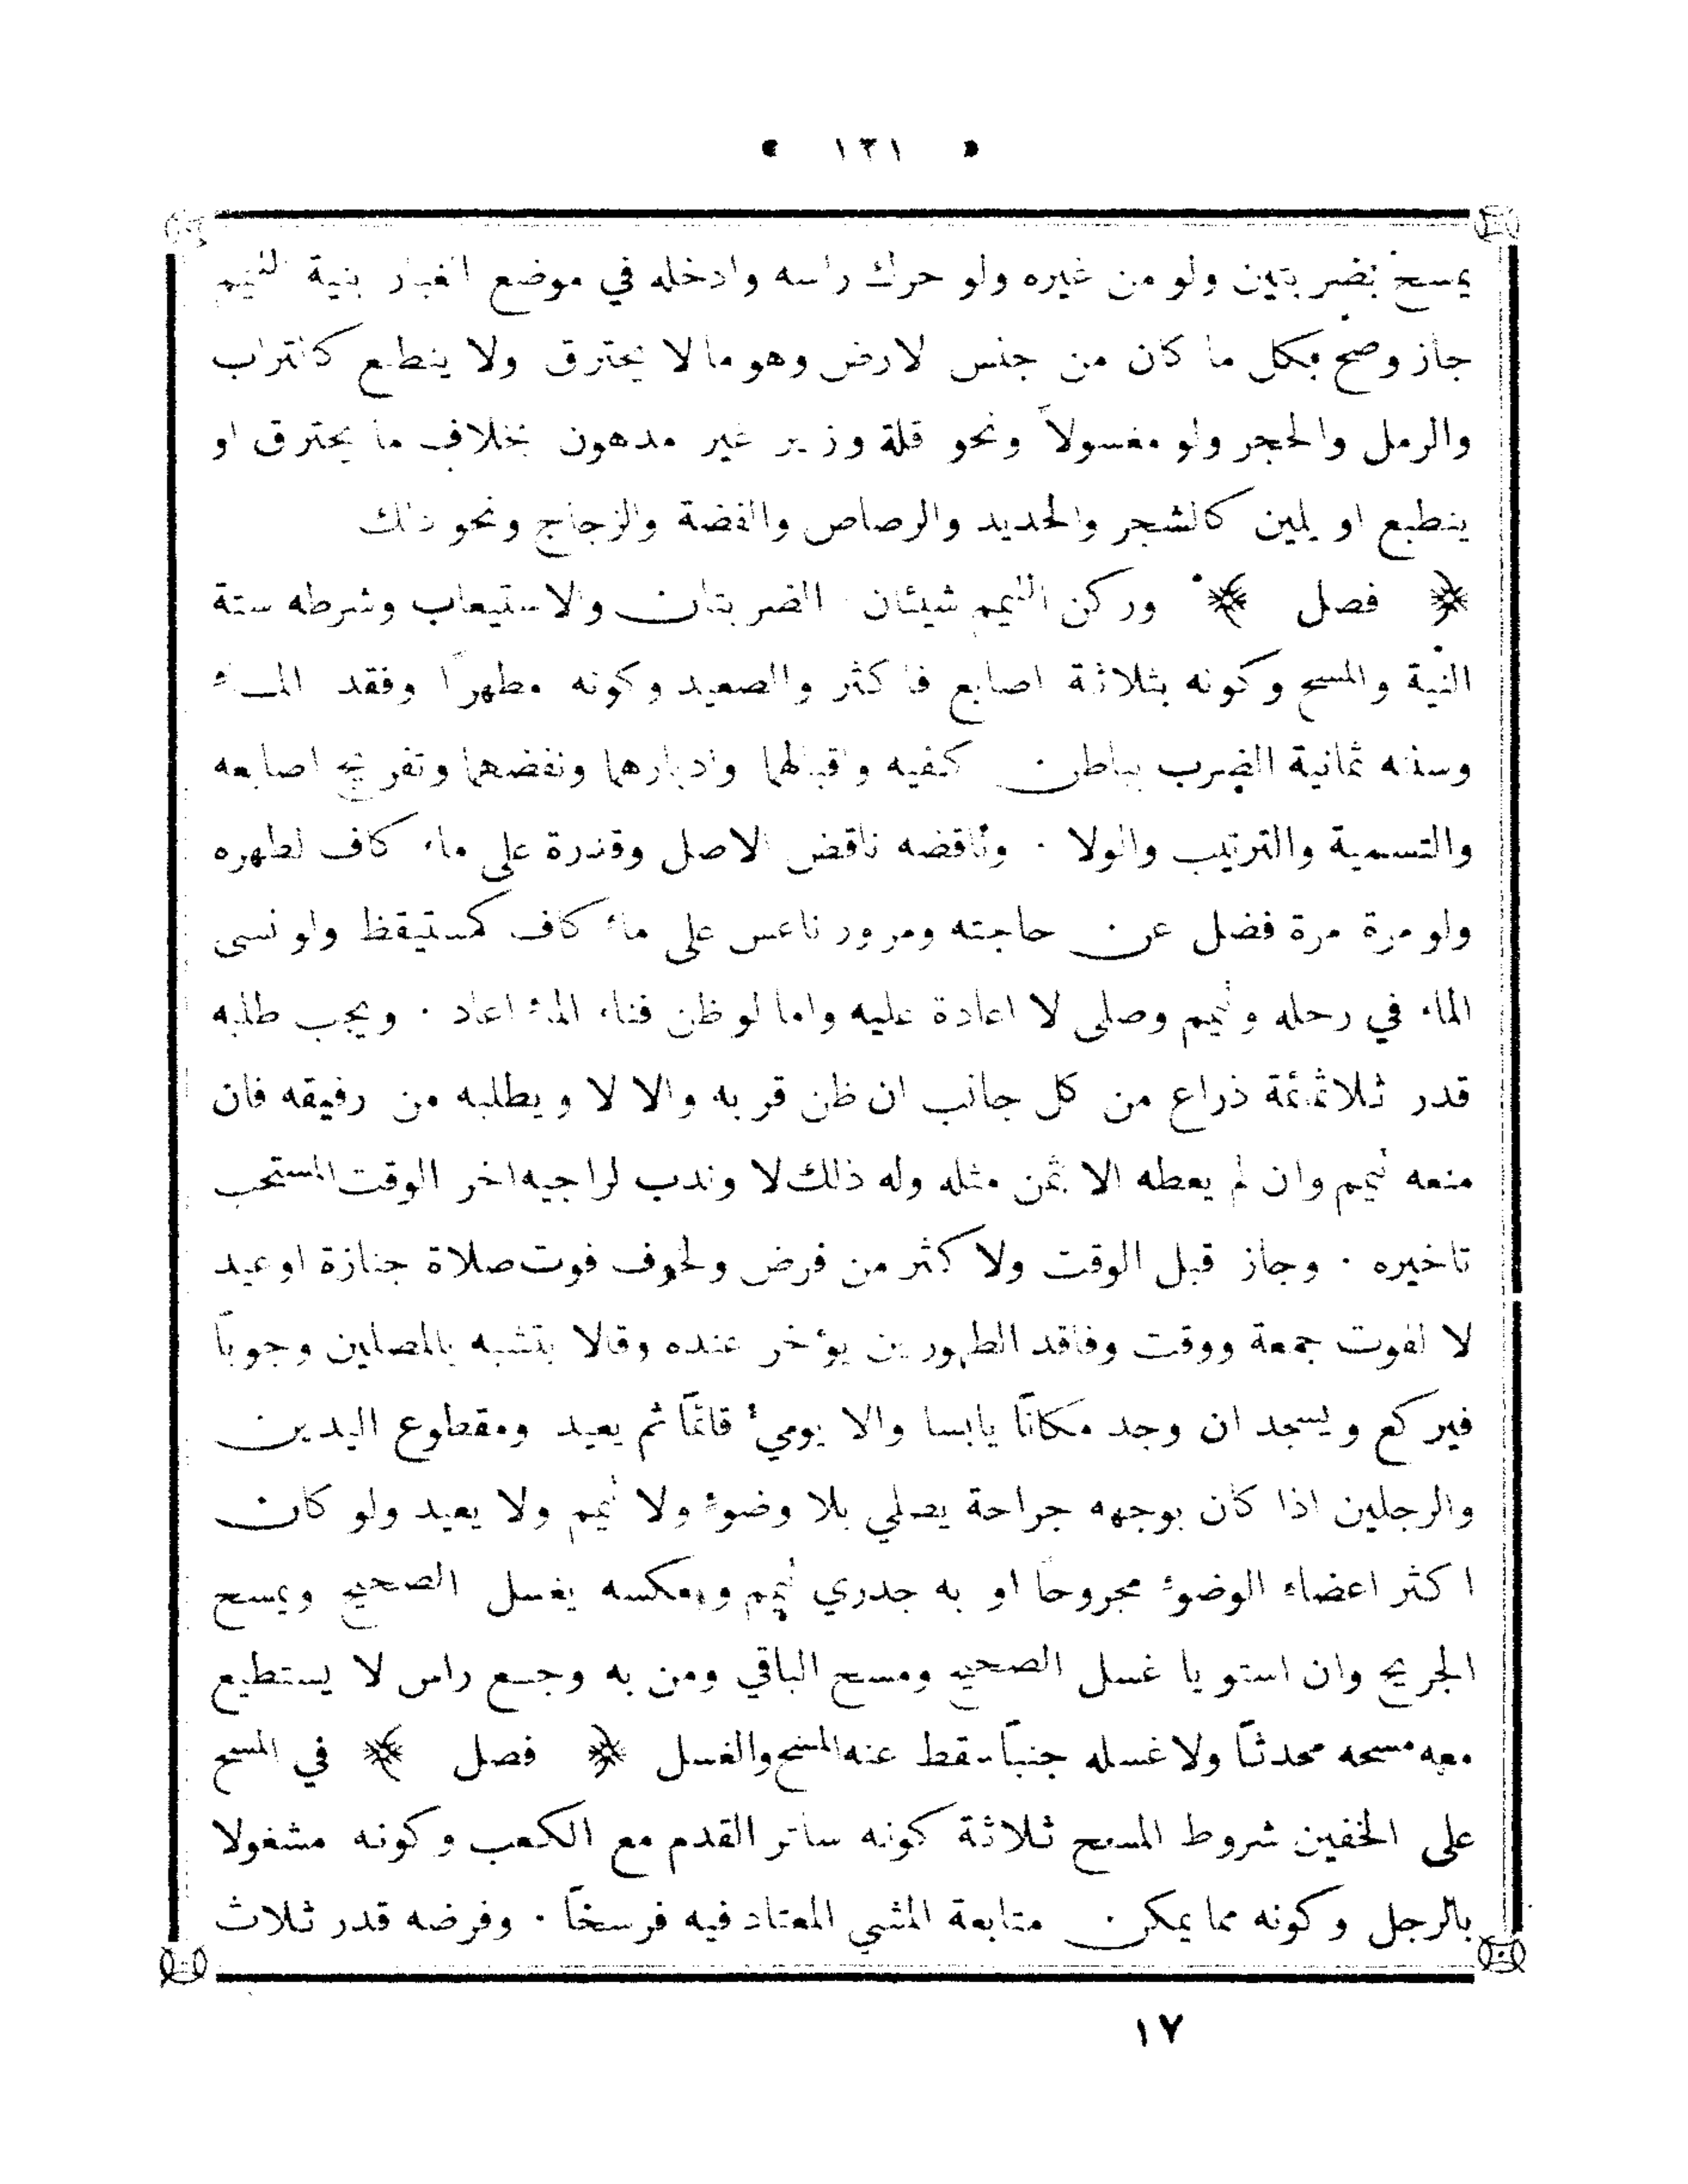 « ١٣١ »
يمسح بضربتين ولو من غيره ولو حرك راسه وادخله في موضع الغبار بنية التيمم
جاز وصح بكل ما كان من جنس لارض وهو ما لا يحترق ولا ينطبع كالتراب
والرمل والحجر ولو مغسولاً ونحو قلة وزير غير مدهون بخلاف ما يحترق او
ينطبع او يلين كالشجر والحديد والرصاص والفضة والزجاج ونحو ذلك
﴿ فصل ﴾ وركن التيمم شيئان الضربتان والاستيعاب وشرطه ستة
النية والمسح وكونه بثلاثة اصابع فاكثر والصعيد وكونه مطهراً وفقد الماء
وسننه ثمانية الضرب بباطن كفيه واقبالهما وادبارهما ونفضهما وتفريج اصابعه
والتسمية والترتيب والولا ٠ وناقضه ناقض الاصل وقدرة على ماء كاف لطهره
ولو مرة مرة فضل عن حاجته ومرور ناعس على ماء كاف كمستيقظ ولو نسى
الماء في رحله وتيمم وصلى لا اعادة عليه واما لو ظن فناء الماء اعاد ٠ ويجب طلبه
قدر ثلاثمئة ذراع من كل جانب ان ظن قربه والا لا ويطلبه من رفيقه فان
منعه تيمم وان لم يعطه الا بثمن مثله وله ذلك لا وندب لراجيه اخر الوقت المستحب
تاخيره ٠ وجاز قبل الوقت ولاكثر من فرض ولخوف فوت صلاة جنازة او عيد
لا لفوت جمعة ووقت وفاقد الطهورين يؤخر عنده وقالا يتشبه بالمصلين وجوباً
فيركع ويسجد ان وجد مكاناً يابسا والا يومئ قائماً ثم يعيد ومقطوع اليدين
والرجلين اذا كان بوجهه جراحة يصلي بلا وضوء ولا تيمم ولا يعيد ولو كان
اكثر اعضاء الوضوء مجروحاً او به جدري تيمم وبعكسه يغسل الصحيح ويمسح
الجريح وان استويا غسل الصحيح ومسح الباقي ومن به وجع راس لا يستطيع
معه مسحه محدثاً ولا غسله جنباً سقط عنه المسح والغسل ﴿ فصل ﴾ في المسح
على الخفين شروط المسح ثلاثة كونه ساتر القدم مع الكعب وكونه مشغولا
بالرجل وكونه مما يمكن متابعة المشي المعتاد فيه فرسخاً ٠ وفرضه قدر ثلاث
١٧